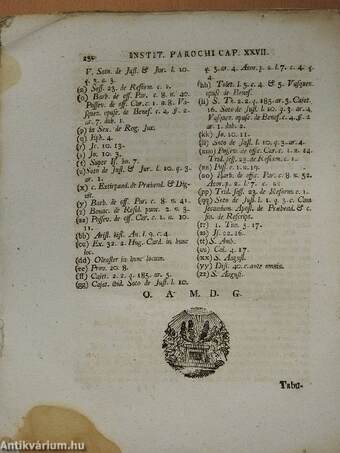 232 INSTIT. PAROCHI CAP. XXVII.
V. Soto. de Just. & Jur. l. 10.
q. 3. a. 3.
(n) Sess. 23. de Reform. c. 1.
(o) Barb. de off. Par. c. 8. n. 40.
Possev. de off. Cur. c. 1. n. 8. Vasquez. opusc. de Benef. c. 4. §. 2.
ar. 7. dub. 1.
(p) in Sex. de Reg. Jur.
(q) Eph. 4.
(r) Jo. 10. 13.
(s) Jo. 10. 3.
(t) Super Is. hn. 7.
(u) Soto de Just. & Jur. l. 10. q. 3.
ar. 1.
(x) c. Extirpand. de Præbend. & Dignit.
(y) Barb. de off. Par. c. 8. n. 41.
(z) Bonac. de Resid. punc. 2. §. 3.
(aa) Possev. de off. Cur. c. 1. n. 10.
11.
(bb) Arist. hist. An. l. 9. c. 4.
(cc) Ex. 32. 2. Hug. Card. in hunc
loc.
(dd) Oleaster in hunc locum.
(ee) Prov. 20. 8.
(ff) Cajet. 2. 2. q. 185. ar. 5.
(gg) Cajet. ibid. Soto de Just. l. 10.
q. 3. ar. 4. Azor. p. 2. l. 7. c. 4. q.
4.
(hh) Tolet. l. 5. c. 4. & 5. Vasquez.
opusc. de Benef.
(ii) S. Th. 2. 2. q. 185. ar. 5. Cajet.
ibid. Soto de Just. l. 10. q. 3. ar. 4.
Vasquez. opusc. de Benef. c. 4. §. 2
ar. 1. dub. 2.
(kk) Jo. 10. 11.
(ll) Soto de Just. l. 10. q. 3. ar. 4.
(mm) Possev. de off. Cur. c. 1. n. 14.
Trid. sess. 23. de Reform. c. 1.
(oo) Barb. de off. Par. c. 8. n. 52.
(pp) Trid. sess. 23. de Reform. c. 1.
(qq) Soto de Just. l. 1. q. 3. c. Cum
(rr) 1. Tim. 5. 17.
(ss) Jo. c. 2. 16.
(tt) S. Amb.
(uu) Gal. 4. 17.
(xx) S. August.
(yy) Dist. 40. c. ante omnia.
(zz) S. August.
O. A. M. D. G.
Tabu-
Antikvárium.hu